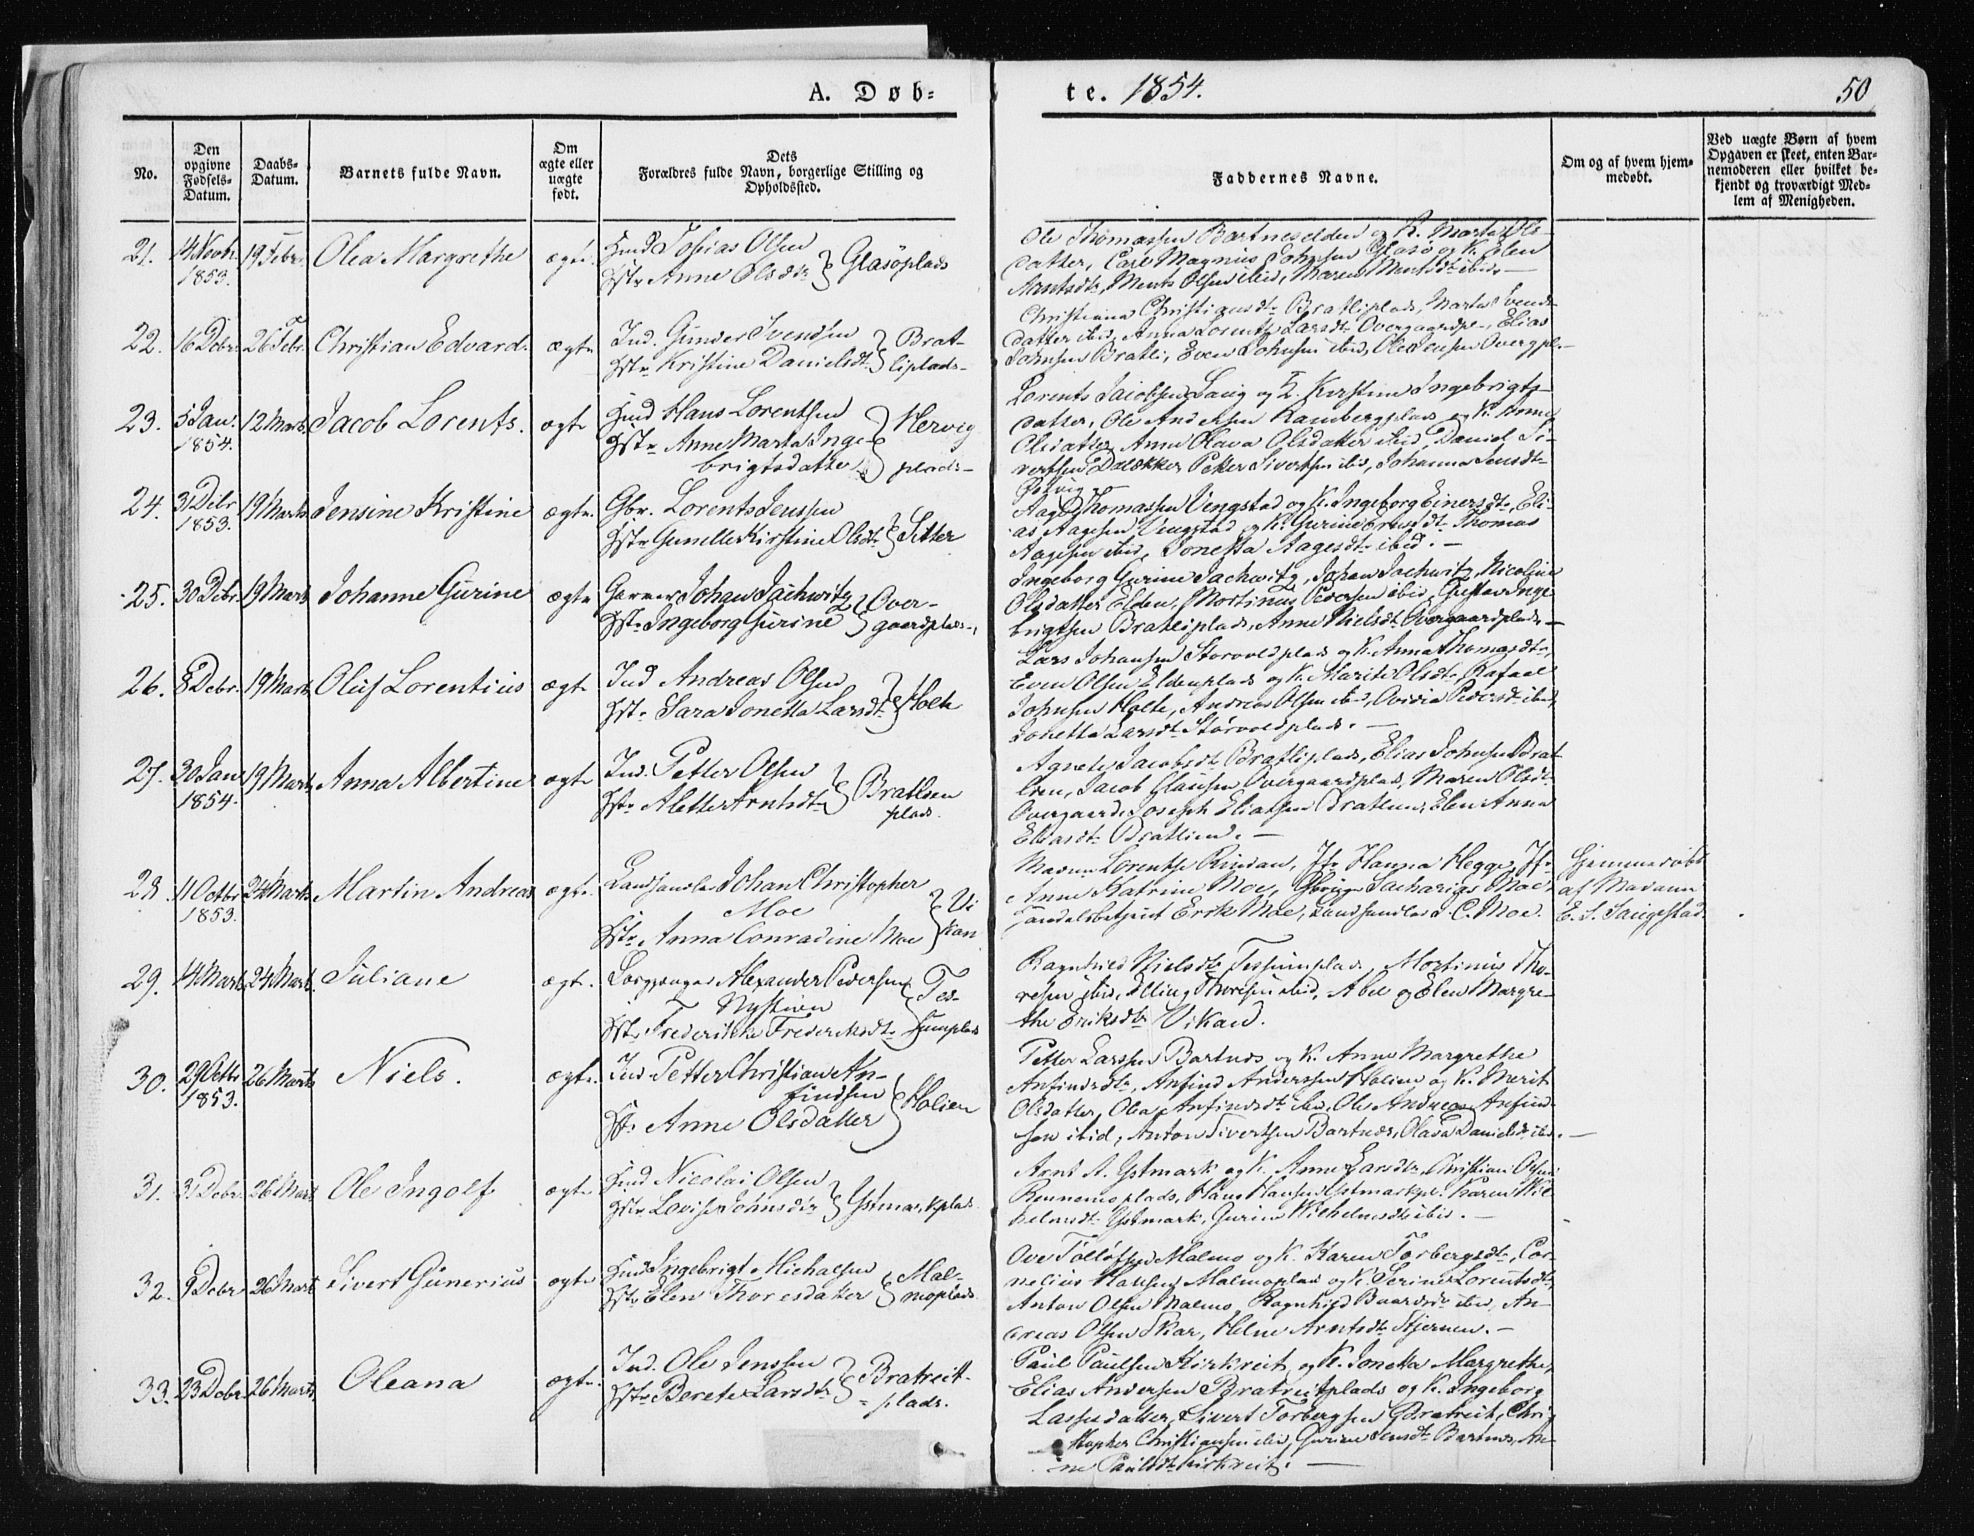 A. Døb-
te. 1854.
50
No.
Den opgivne Fødsels-Datum.
Daabs-Datum.
Barnets fulde Navn.
Om ægte eller uægte født.
Dets
Forældres fulde Navn, borgerlige Stilling og
Opholdssted.
Faddernes Navne.
Om og af hvem hjem-
medøbt.
Ved uægte Børn af hvem
Opgaven er skeet, enten Bar-
nemoderen eller hvilket be-
kjendt og troværdigt Med-
lem af Menigheden.
21. 14 Novbr. 1853. 19 Febr. Olea Margrethe ægte.
Tobias Olsen
Hstr. Anne Olsdtr. } Glasøplads
Ole Thomassen Bartneselden og K. Marta Ols-
datter, Carl Magnus Johnsen Glasø og K. Elen
Arntsdtr., Ments Olsen ibid, Maren Mortsdtr. ibid. —
22. 16 Debr. 26 Febr. Christian Edvard. ægte
Ind. Gunder Svendsen
Hstr. Kristine Danielsdtr. } Brat-
liplads.
Christiana Christiansdtr. Bratliplads, Marta Svends-
datter ibid, Anna Lorentse Larsdtr. Overgaardpl., Elias
Johnsen Bratli, Even Johnsen ibid, Ole Jensen Overgpl. —
23. 5 Jan. 1854. 12 Marts Jacob Lorents. ægte
Hans Lorentsen
Hstr. Anne Marta Inge-
brigtsdatter } Hervig
plads
Lorents Jacobsen Saug og K. Kirstine Ingebrigts-
datter, Ole Andersen Rambergplads og K. Anne
Olsdatter, Anne Olava Olsdatter ibid, Daniel Si-
vertsen Dalækker, Petter Sivertsen ibid, Johanna Jensdtr.
24. 31 Debr 1853. 19 Marts Jensine Kristine ægte.
Gbr. Lorents Jenssen
Hstr. Gunelle Kirstine Olsdtr. } Sitter
Aage Thomassen Vengstad og K. Ingeborg Einersdtr., Eli-
as Aagesen Vengstad og K. Gurine Thomas
Aagesen ibid, Jonetta Aagesdtr. ibid. —
25. 30 Debr. 19 Marts Johanne Gurine ægte
Garver Johan Jachwitz
Hstr. Ingeborg Gurine } Over-
gaardplads.
Ingeborg Gurine Jachwitz, Johan Jachwitz, Nicoline
Olsdatter Elden, Mortinus Pedersen ibid, Gustav Inge-
brigtsen Bratliplads, Anne Nielsdtr. Overgaardplads. —
26. 8 Debr. 19 Marts Oluf Lorentius ægte
Ind Andreas Olsen
Hstr. Sara Jonetta Larsdtr. } Holte
Lars Johansen Storvoldplads og K. Anna Thomasdtr.,
Even Olsen Eldenplads og K. Marite Olsdtr. Rafael
Johnsen Holte, Andreas Olsen ibid, Ovidia Pedersdtr. ibid,
Jonetta Larsdtr. Storvoldplads. —
27. 30 Jan 1854. 19 Marts Anna Albertine ægte
Ind. Petter Olsen
Hstr. Alette Arntsdtr. } Bratlien
plads.
Agnete Jacobsdtr. Bratliplads, Elias Johnsen Brat-
lien, Jacob Olausen Overgaardplads, Maren Olsdtr.
Overgaard, Joseph Eliassen Bratlien, Elen Anna
Eliasdtr. Bratlien. —
28. 11 Octbr 1853. 24 Marts Martin Andreas ægte.
Landhandler Johan Christopher
Moe
Hstr. Anna Conradine Moe } Vi
kan
Madam Lorentse Rindan, Jfr Hanna Hegge, Jfr
Anne Katrine Moe, Sacharias Moe,
Handelsbetjent Erik Moe, Landhandler J. C. Moe.
Hjemmedøbt
af Madame
E. S. Saugestad
29. 4 Marts 24 Marts Juliane ægte.
Alexander Pedersen
Nystuen
Hstr. Frederikke Frederiksdtr. } Tes-
sumplads
Ragnhild Nielsdtr. Tessumplads, Mortinus Tho-
resen ibid, Elling Thoresen ibid, Abel og Elen Margre-
the Eriksdtr. Vikan.
30. 29 Octbr 1853. 26 Marts Niels. ægte.
Ind Petter Christian An-
findsen
Hstr. Anne Olsdatter } Holien
Petter Larsen Bartnes og K. Anne Margrethe
Anfindsdtr., Anfind Anderssen Holien og K. Merit
Olsdatter, Olea Anfindsdtr. ibid, Ole Andreas Anfind-
sen ibid, Anton Sivertsen Bartnes, Olava Danielsdtr. ibid. —
31. 31 Debr. 26 Marts Ole Ingolf ægte
Nicolai Olsen
Hstr. Lovise Johnsdtr. } Ystmarkplads
Arnt A. Ystmark og K. Anne Larsdtr., Christian Olsen
Rennemoplads, Hans Hansen Ystmarkpl. Karen Wil-
helmsdtr. Ystmark, Gurine Wilhelmsdtr. ibid. —
32. 9 Debr 26 Marts Sivert Gunerius ægte
Ingebrigt Michalsen
Hstr. Elen Thoresdatter } Mal-
moplads
Ove Tollofsen Malmo og K. Karen Torbergsdtr., Cor-
nelius Hansen Malmoplads og K. Serine Lorentsdtr.,
Anton Olsen Malmo, Ragnhild Baardsdtr. ibid, An-
dreas Olsen Skar, Helene Arntsdtr. Stjernen. —
33. 23 Debr 26 Marts Oleana ægte.
Ind. Ole Jenssen
Hstr. Berete Larsdtr. } Bratreit-
plads.
Paul Paulsen Kirkreit og K. Jonetta Margrethe,
Elias Andersen Bratreitplads og K. Ingeborg
Lassesdatter, Sivert Torbergsen Bratreit, Chri-
stopher Christiansen ibid, Gurine Jensdtr. Bartnes, An-
ne Paulsdtr. Kirkreit. —